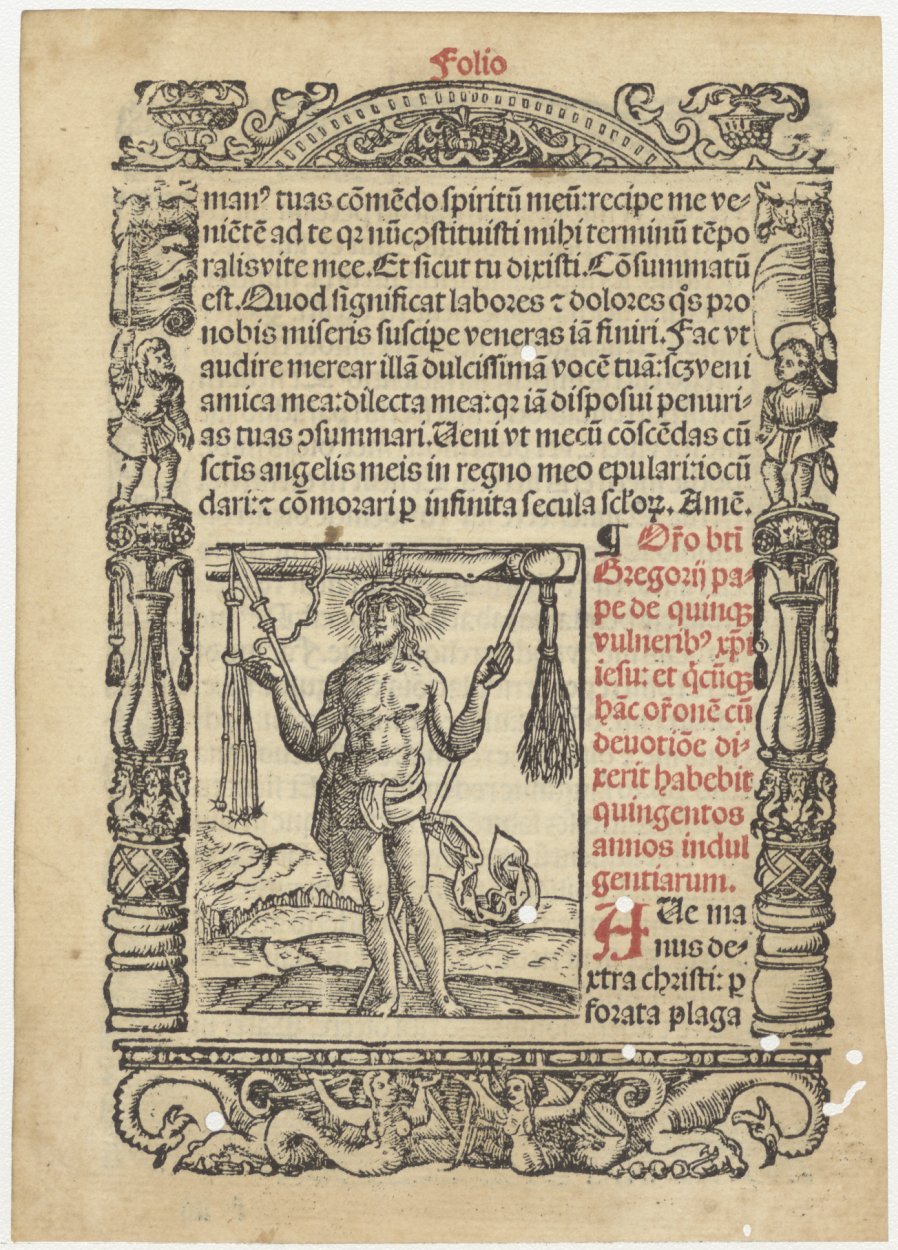 Folio
manꝰ tuas cōmēdo spiritū meū:recipe me ve-
niētē ad te qꝛ nūc ↄstituisti mihi terminū tēpo
ralis vite mee.Et sicut tu dixisti.Cōsummatū
est.Quod significat labores ⁊ dolores q̄s pro
nobis miseris suscipe veneras iā finiri.Fac vt
audire merear illā dulcissimā vocē tuā:scꝫ veni
amica mea:dilecta mea:qꝛ iā disposui penuri-
as tuas ↄsummari.Ueni vt mecū cōscēdas cū
sctīs angelis meis in regno meo epulari:iocū
dari:⁊ cōmorari ꝑ infinita secula sclorꝝ. Amē.
¶ Or̄o bti
Gregorij pa-
pe de quinqꝫ
vulneribꝰ xp̄i
iesu: et q̄cūqꝫ
hāc or̄onē cū
deuotiōe di-
xerit habebit
quingentos
annos indul
gentiarum.
AUe ma
nus de-
xtra christi: ꝑ
forata plaga